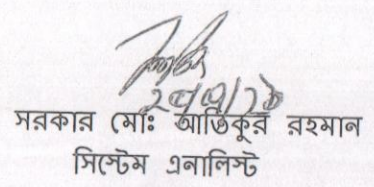 সরকার মোঃ আতিকুর রহমান
সিস্টেম এনালিস্ট